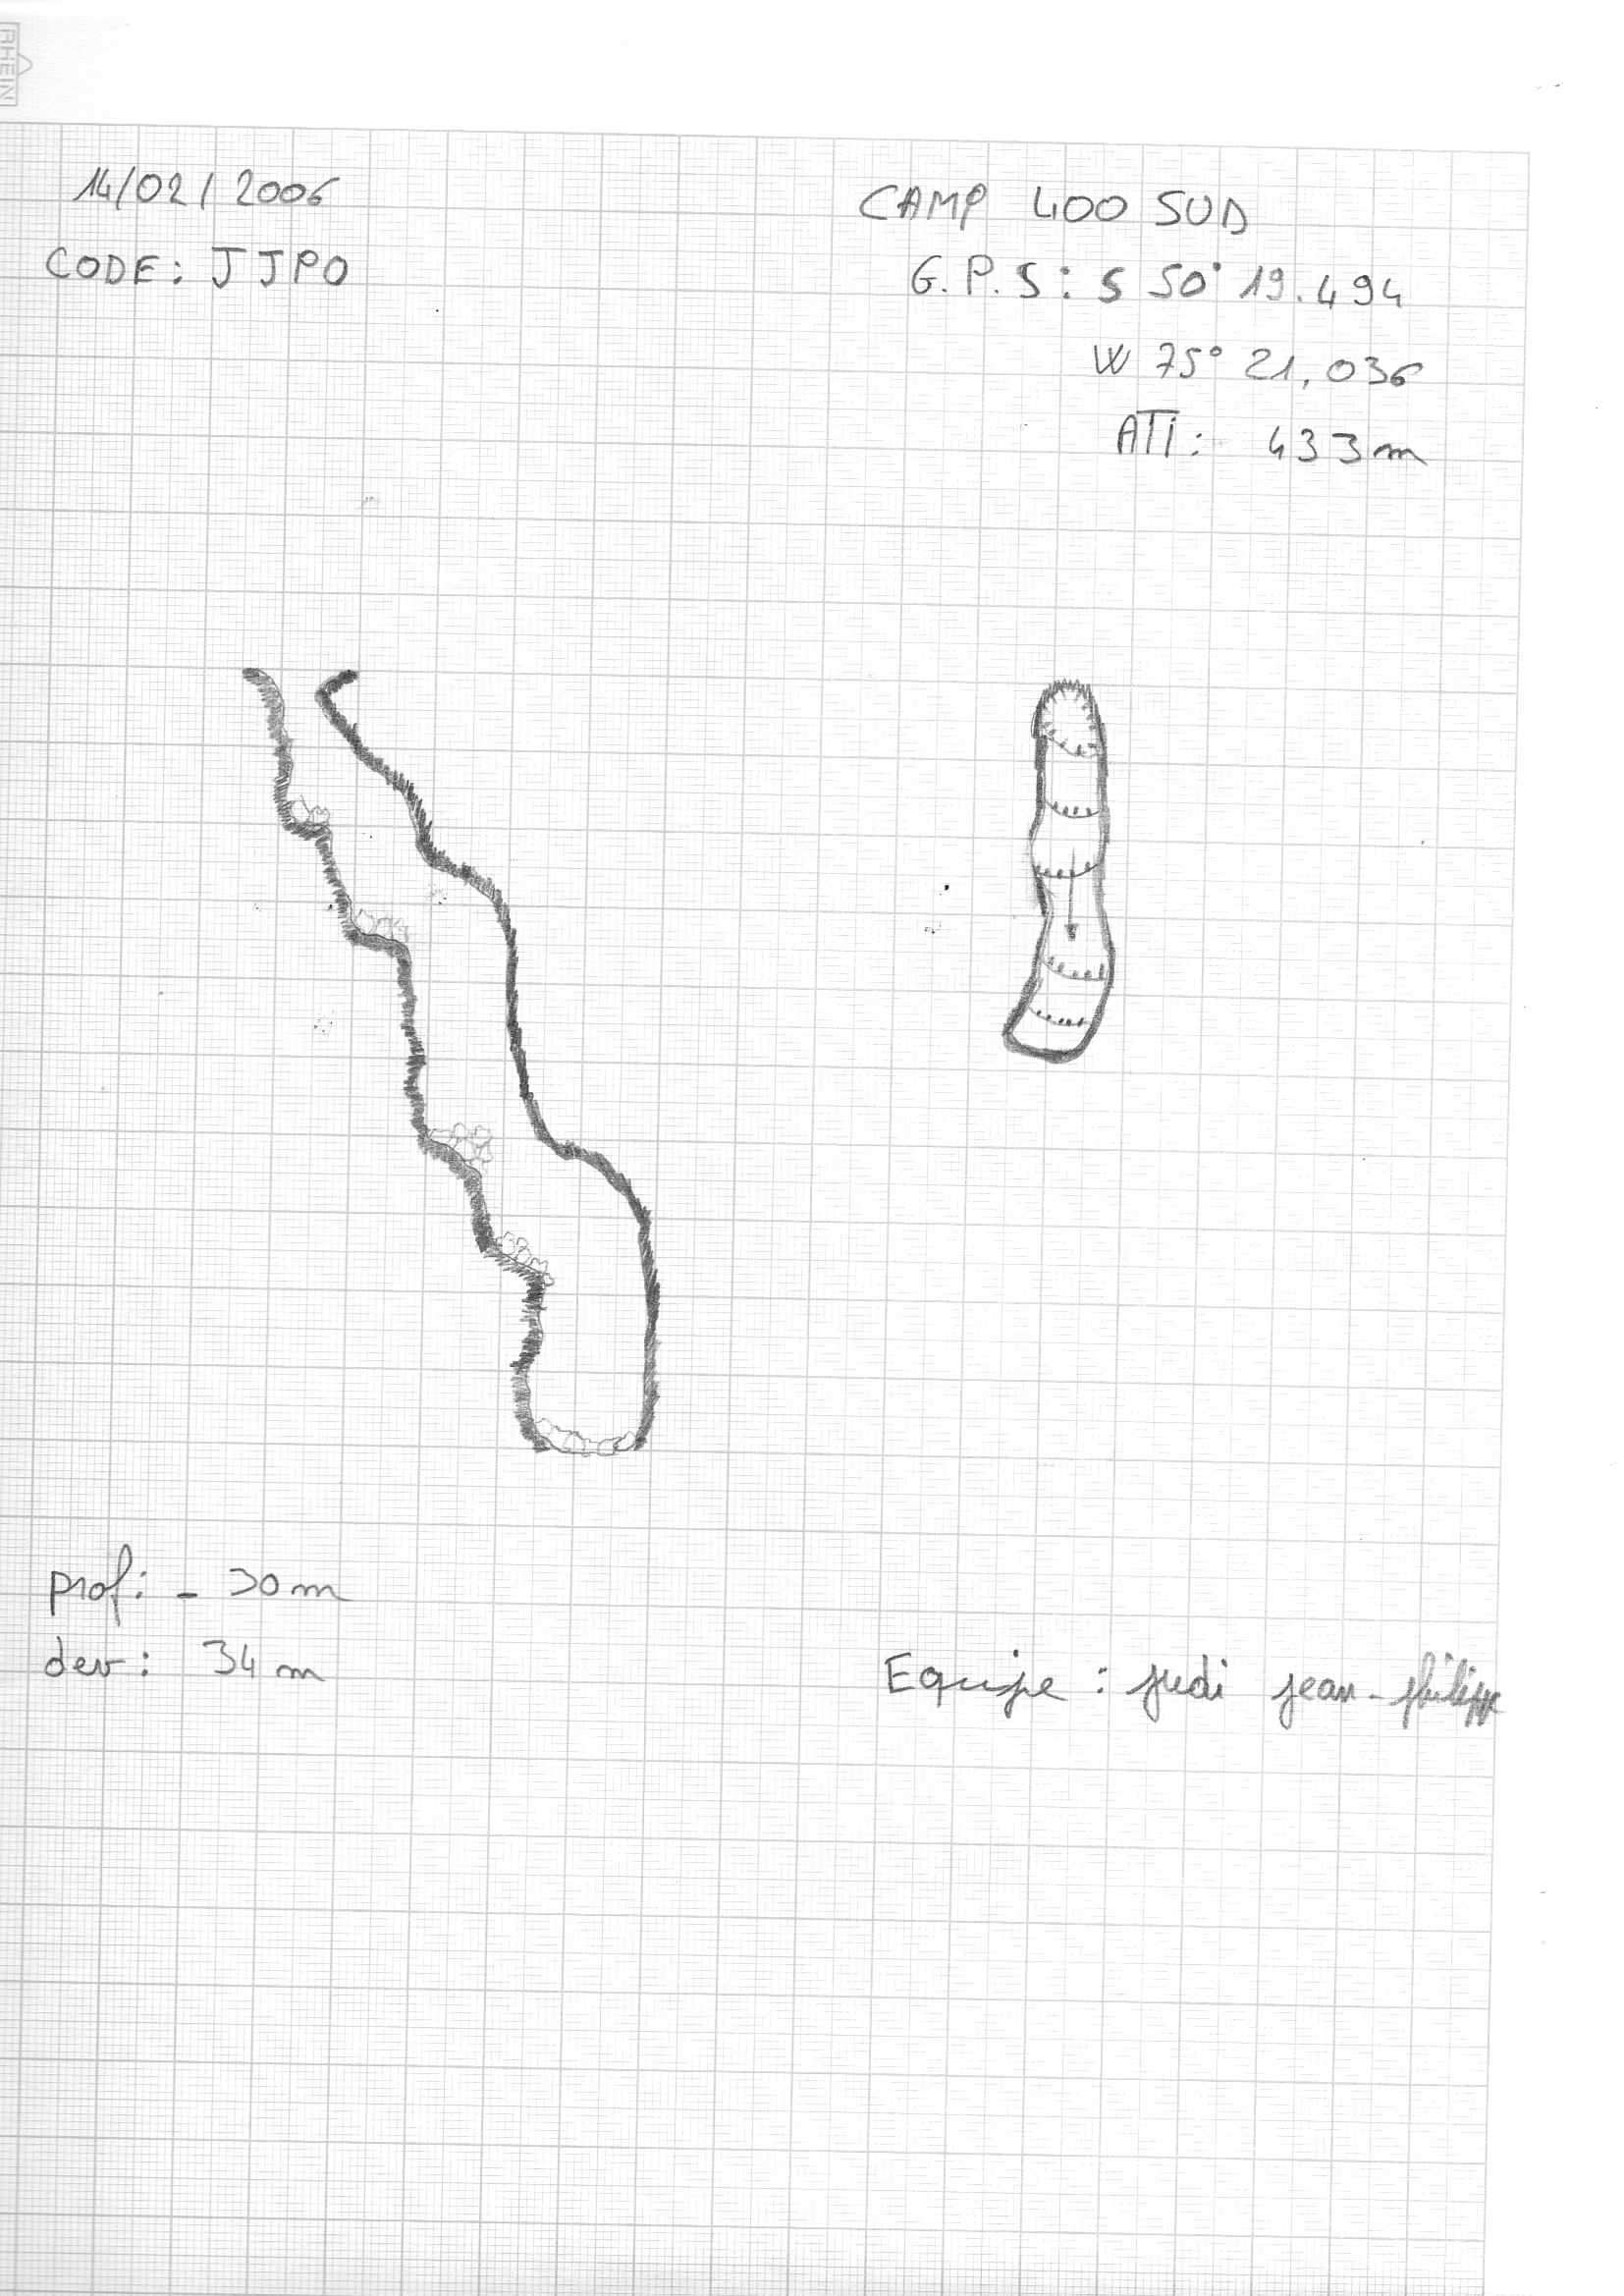 RHEIN
14/02/2006
CODE: JJPO
CAMP 400 SUD
G.P.S: S 50° 19.494
W 75° 21,036
ATi: 433m
prof: - 30m
dev: 34m
Equipe: judi jean-philippe